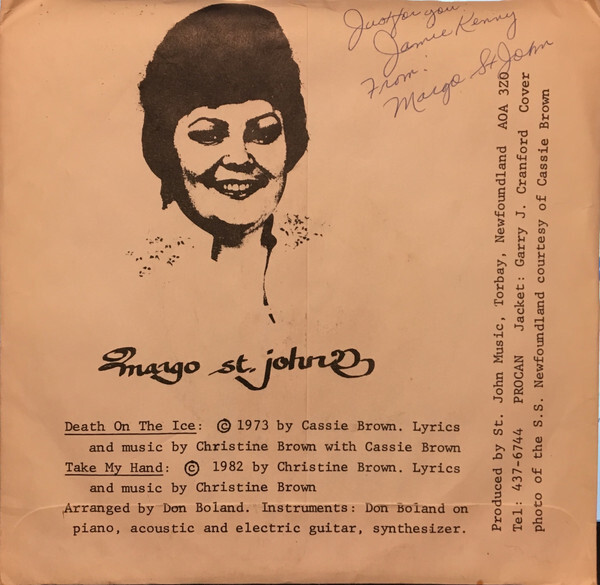 Just for you
Jamie Kenny
From:
Margo St John
margo st. john
Death On The Ice: © 1973 by Cassie Brown. Lyrics
and music by Christine Brown with Cassie Brown
Take My Hand: © 1982 by Christine Brown. Lyrics
and music by Christine Brown
Arranged by Don Boland. Instruments: Don Boland on
piano, acoustic and electric guitar, synthesizer.
Produced by St. John Music, Torbay, Newfoundland A0A 3Z0
Tel: 437-6744 PROCAN Jacket: Garry J. Cranford Cover
photo of the S.S. Newfoundland courtesy of Cassie Brown